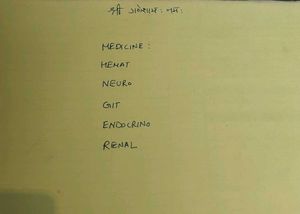 श्री गणेशाय: नम:
MEDICINE:
HEMAT
NEURO
GIT
ENDOCRINO
RENAL